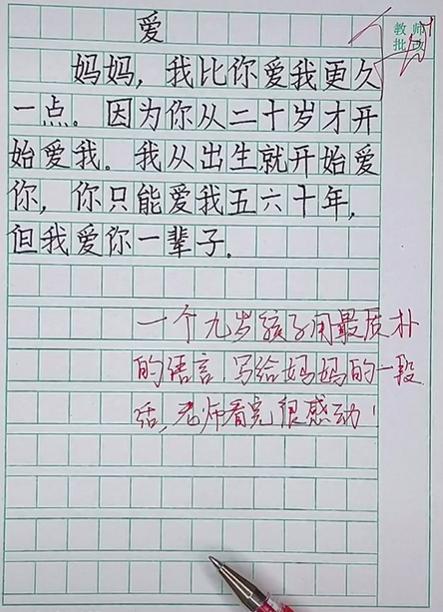 爱
教师
批改
妈妈，我比你爱我更久
一点。因为你从二十岁才开
始爱我。我从出生就开始爱
你，你只能爱我五六十年，
但我爱你一辈子．
一个九岁孩子用最质朴
的语言，写给妈妈的一段
话，老师看完很感动！